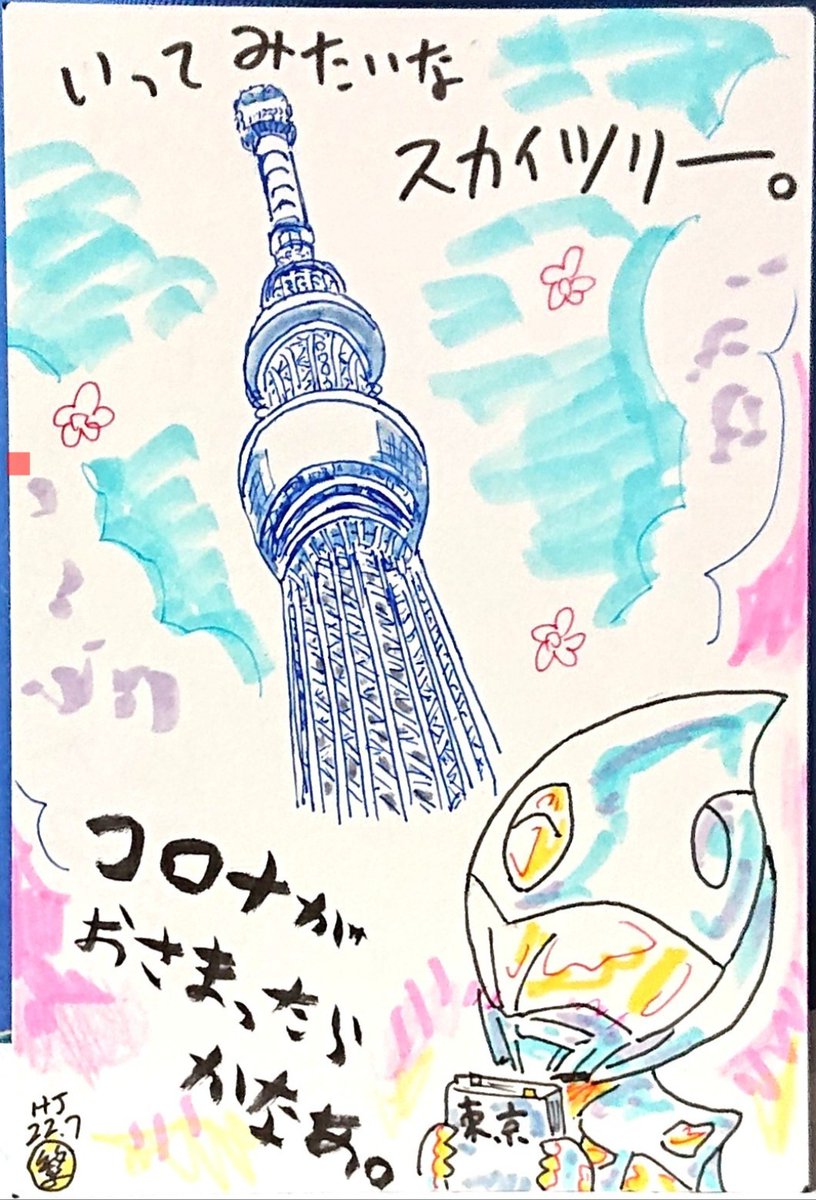 いってみたいな
スカイツリー。
コロナが
おさまったら
かなあ。
東京
HJ
22.7